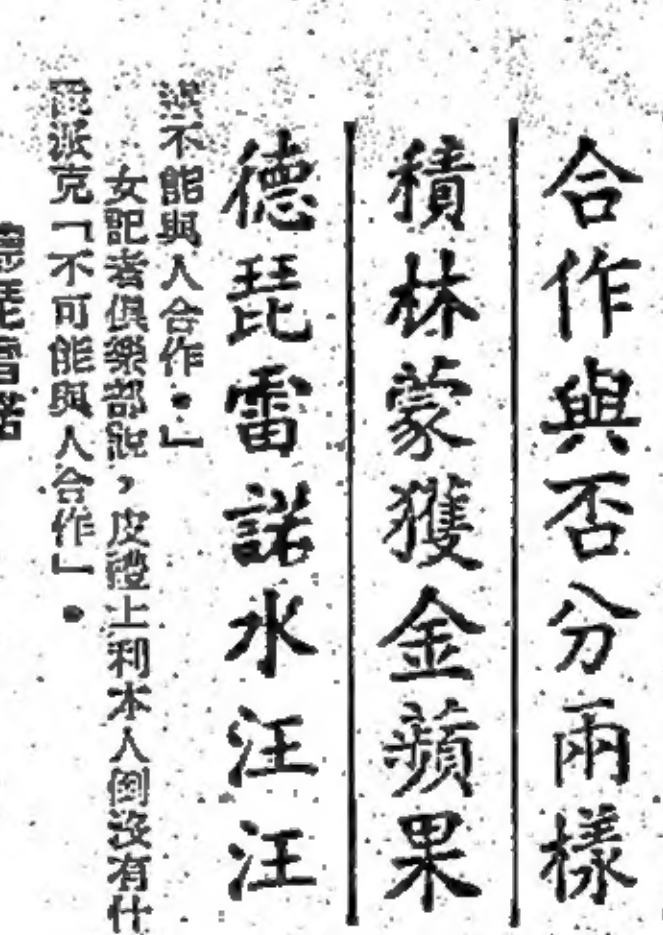 合作與否分兩樣
積林蒙獲金蘋果
德琵雷諾水汪汪
不能與人合作。」
女記者俱樂部說,皮禮上利本人倒沒有什
派克「不可能與人合作」。
德琵雷諾